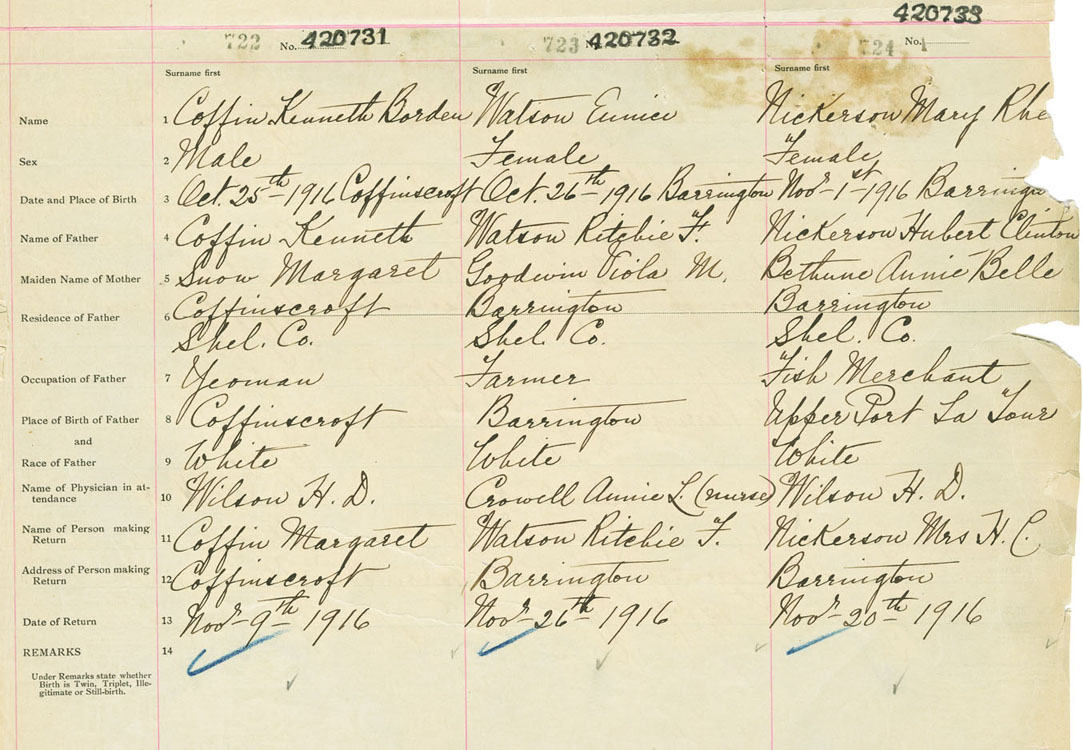 420733
722 No. 420731 723 420732 724 No. 1
Surname first Surname first Surname first
Name 1 Coffin Kenneth Borden Watson Eunice Nickerson Mary Rhe
Sex 2 Male Female Female
Date and Place of Birth 3 Oct. 25th 1916 Coffinscroft Oct. 26th 1916 Barrington Novr 1st 1916 Barring
Name of Father 4 Coffin Kenneth Watson Ritchie F. Nickerson Hubert Clinton
Maiden Name of Mother 5 Snow Margaret Goodwin Viola M. Bethune Annie Belle
Residence of Father 6 Coffinscroft Barrington Barrington
Shel. Co. Shel. Co. Shel. Co.
Occupation of Father 7 Yeoman Farmer Fish Merchant
Place of Birth of Father 8 Coffinscroft Barrington Upper Port La Tour
and
Race of Father 9 White White White
Name of Physician in at-
tendance 10 Wilson H. D. Crowell Annie L. (nurse) Wilson H. D.
Name of Person making
Return 11 Coffin Margaret Watson Ritchie F. Nickerson Mrs H. C.
Address of Person making
Return 12 Coffinscroft Barrington Barrington
Date of Return 13 Novr 9th 1916 Novr 26th 1916 Novr 20th 1916
REMARKS 14
Under Remarks state whether
Birth is Twin, Triplet, Ille-
gitimate or Still-birth.